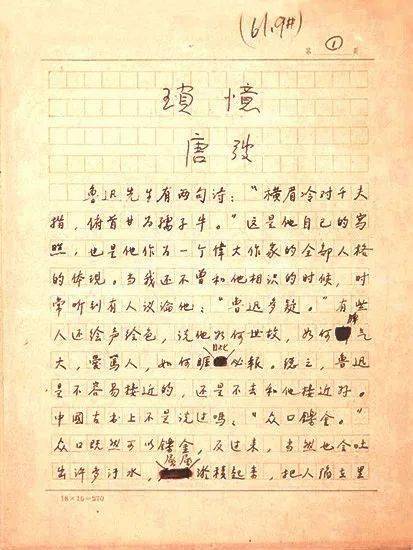 (61.9#)
第 ① 页
瑣憶
唐弢
鲁迅先生有两句诗：“横眉冷对千夫
指，俯首甘为孺子牛。”这是他自己的写
照，也是他作为一个偉大作家的全部人格
的体现。当我还不曾和他相识的时候，时
常听到有人议论他：“鲁迅多疑。”有些
人还绘声绘色，说他如何世故，如何脾气
大，愛罵人，如何睚眦必報。总之，鲁迅
是不容易接近的，还是不去和他接近好。
中國古书上不是说过吗：“众口铄金。”
众口既然可以铄金，反过来，当然也会吐
出许多汙水，淤積起来，把人在里
18×15=270